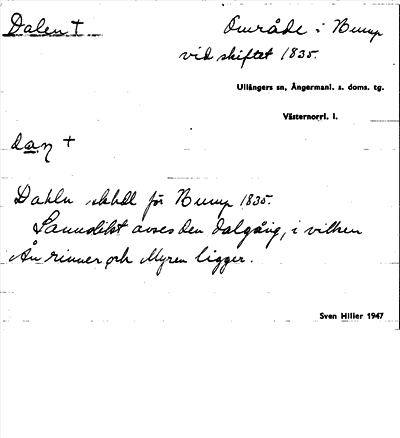 Dalen +
Område i Bump
vid skiftet 1835.
Ullångers sn, Ångermanl. s. doms. tg.
Västernorrl. l.
dan +
Dahln skhdl för Bump 1835.
Sannolikt avses den dalgång, i vilken
Ån rinner och Myren ligger.
Sven Hiller 1947